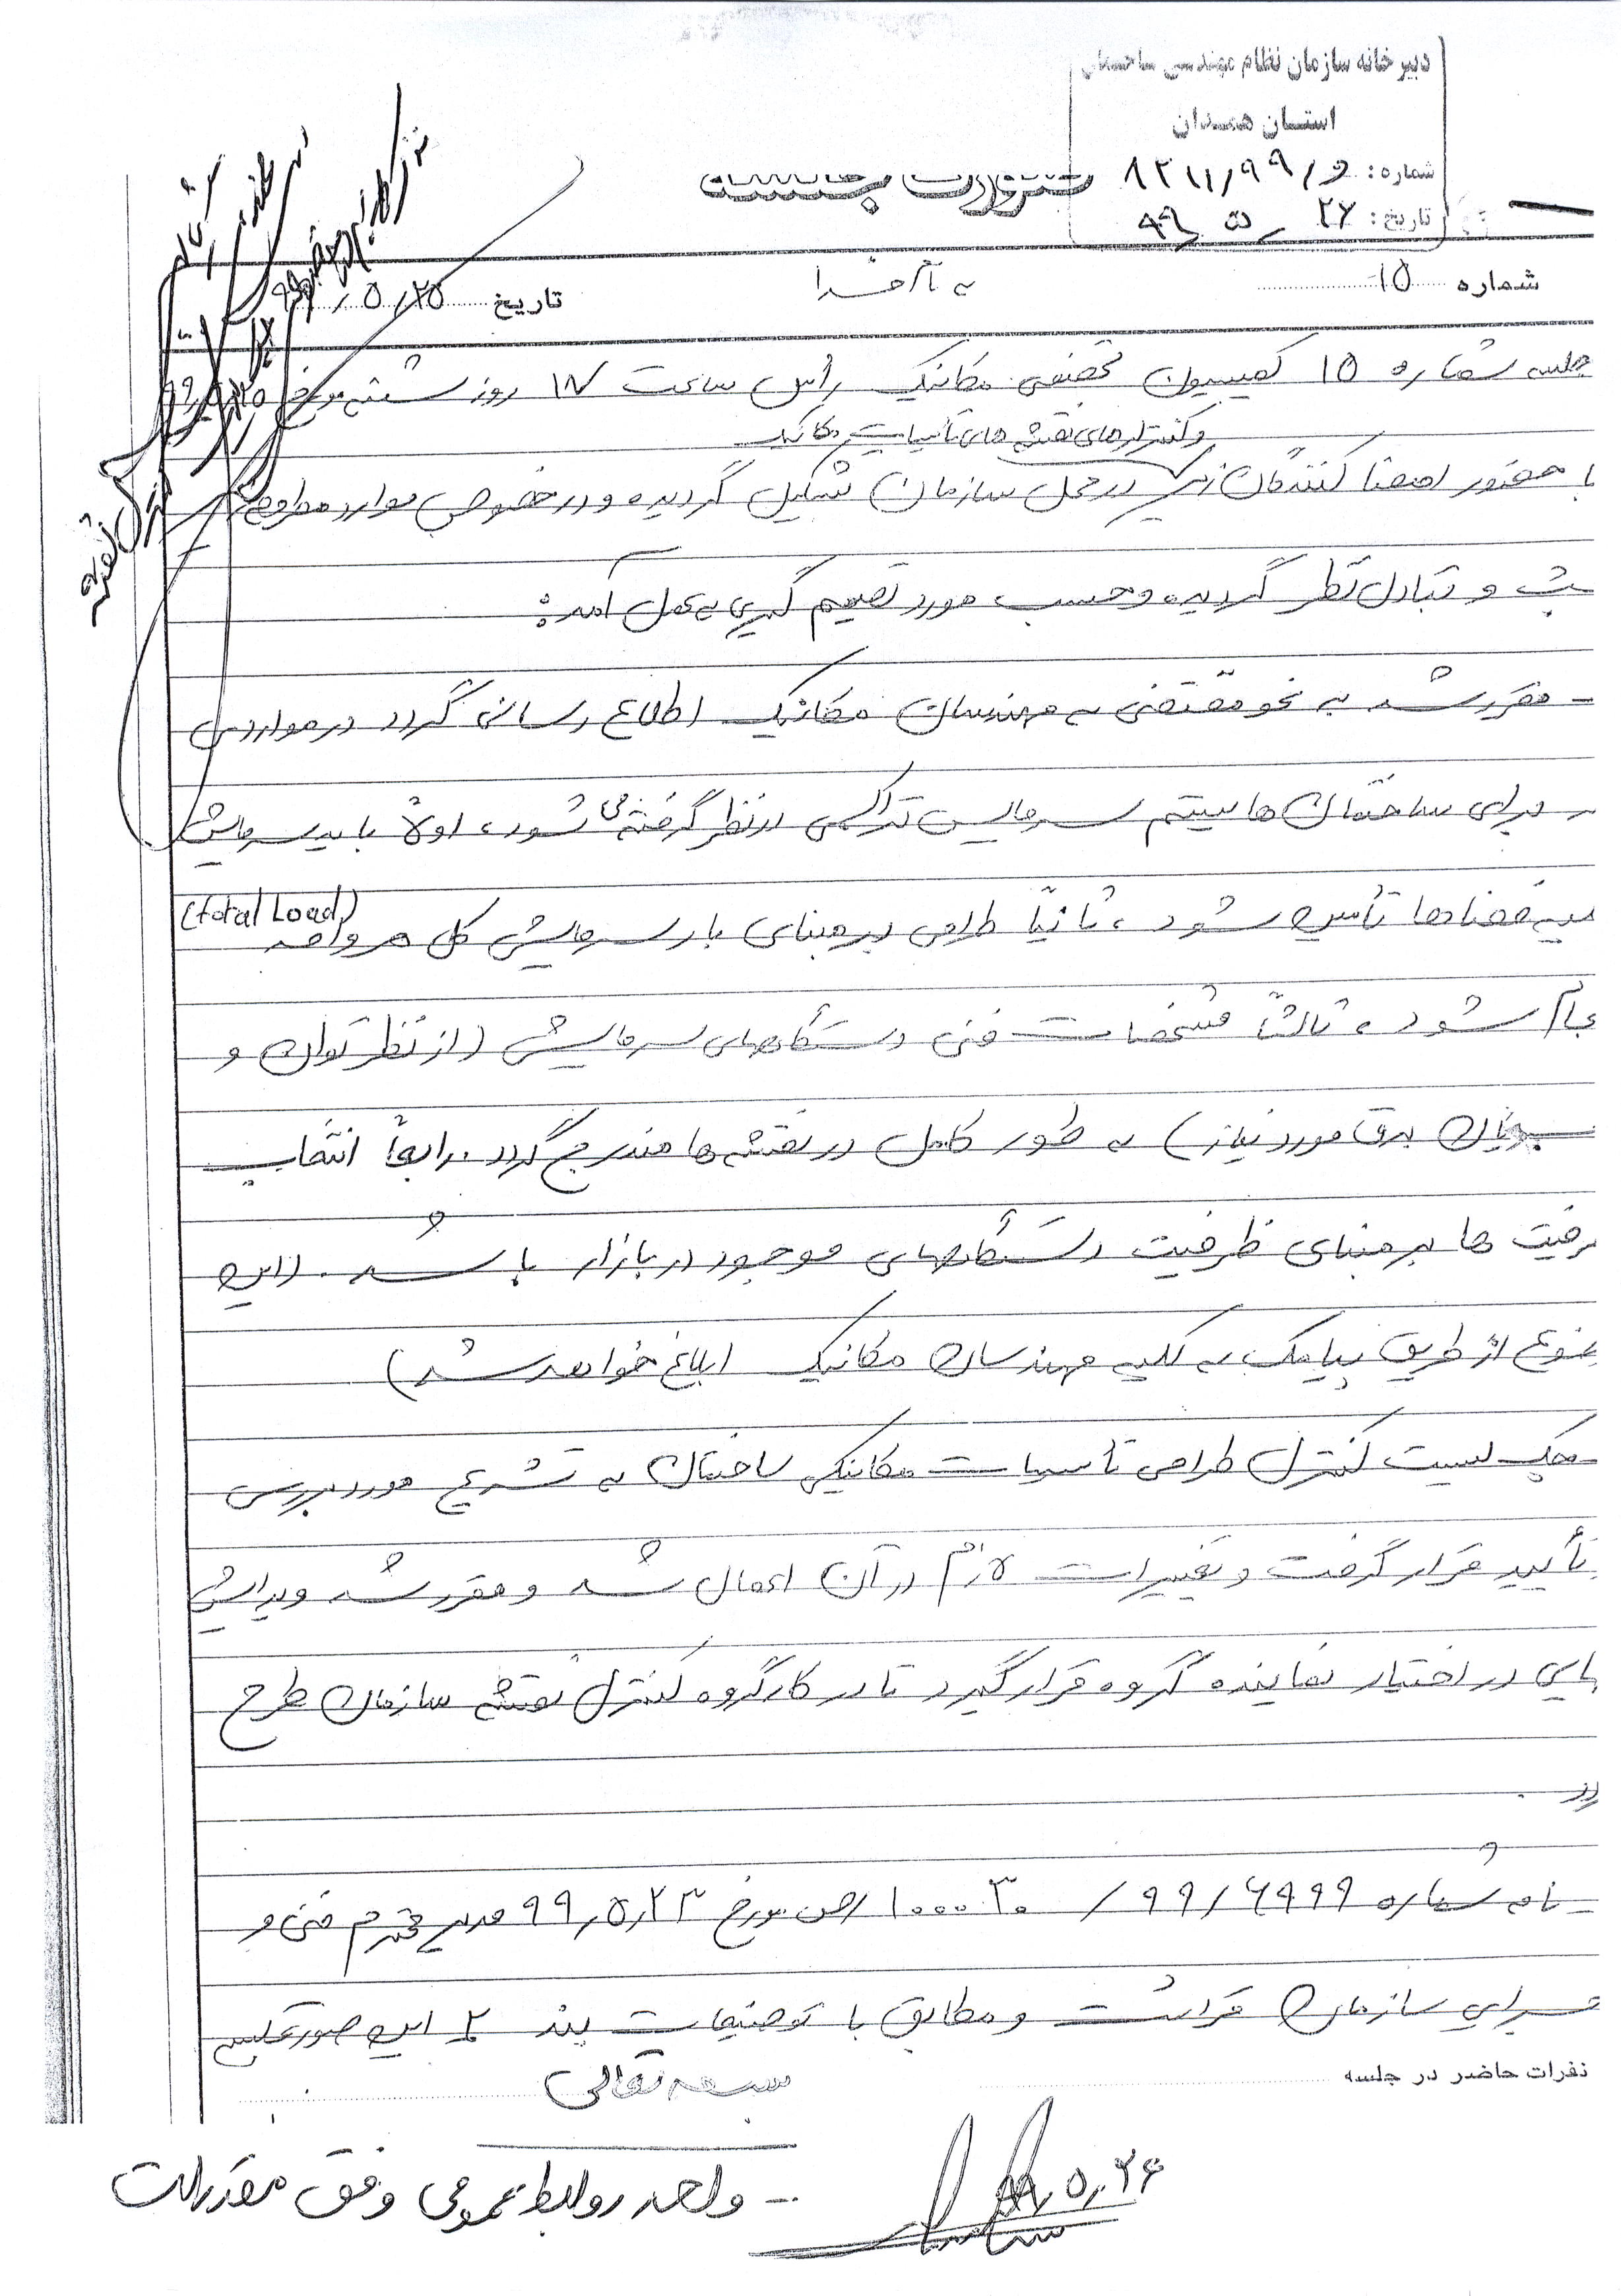 دبیرخانه سازمان نظام مهندسی ساختمان
استان همدان
شماره: ۸۲۱۱/۹۹/و
تاریخ: ۹۹/۵/۲۶
صورت جلسه
شماره ۱۵
به نام خدا
تاریخ ۹۹/۵/۲۵
جلسه شماره ۱۵ کمیسیون تخصصی مکانیک رأس ساعت ۱۸ روز شنبه مورخ ۹۹/۵/۲۵
و کنترلرهای نقشه های تأسیسات مکانیک
با حضور امضا کنندگان زیر در محل سازمان تشکیل گردیده و در خصوص موارد مطروحه
بحث و تبادل نظر گردیده و حسب مورد تصمیم گیری به عمل آمد:
- مقرر شد به نحو مقتضی به مهندسان مکانیک اطلاع رسانی گردد در مواردی
برای ساختمان ها سیستم سرمایش تراکمی در نظر گرفته می شود، اولاً باید سرمایش
فضاها تأمین شود، ثانیاً طراحی بر مبنای بار سرمایش کل هر واحد (total Load)
انجام شود، ثالثاً مشخصات فنی دستگاههای سرمایش (از نظر توان و
جریان برق مورد نیاز) به طور کامل در نقشه ها مندرج گردد. رابعاً انتخاب
ظرفیت ها بر مبنای ظرفیت دستگاههای موجود در بازار باشد. (این
موضوع از طریق پیامک به کلیه مهندسان مکانیک ابلاغ خواهد شد)
- چک لیست کنترل طراحی تأسیسات مکانیکی ساختمان به تشریح مورد بررسی
تأیید قرار گرفت و تغییرات لازم در آن اعمال شد و مقرر شد ویرایش
نهایی در اختیار نماینده گروه قرار گیرد تا در کارگروه کنترل نقشه سازمان طرح
گردد.
- نامه شماره ۹۹/۶۹۹۹/ ۱۰۰۰۳۰/ص مورخ ۹۹/۵/۲۳ مدیر محترم فنی و
اجرایی سازمان قرائت و مطابق با توضیحات بند ۲ این صورتجلسه
نفرات حاضر در جلسه
بسمه تعالی
- واحد روابط عمومی وفق مقررات
۹۹/۵/۲۶